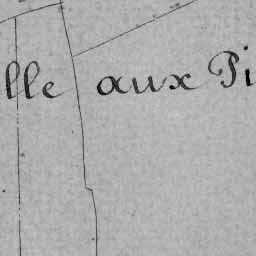 lle aux Pi